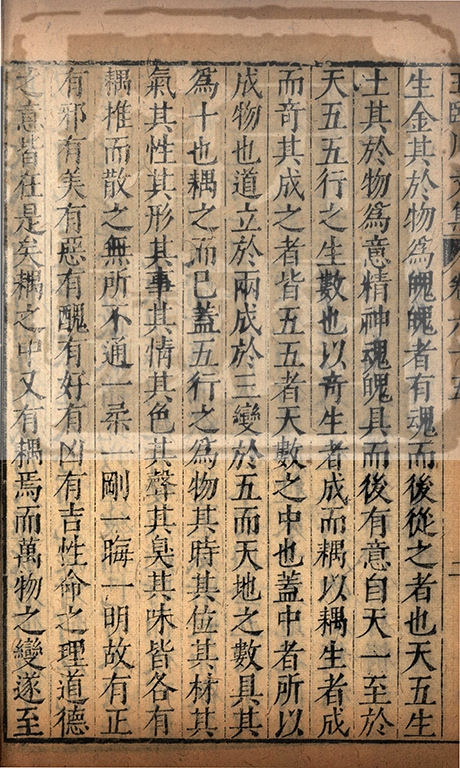 王臨川文集 卷六十五
生金其於物為魄魄者有魂而後從之者也天五生
土其於物為意精神魂魄具而後有意自天一至於
天五五行之生數也以奇生者成而耦以耦生者成
而奇其成之者皆五五者天數之中也蓋中者所以
成物也道立於兩成於三變於五而天地之數具其
為十也耦之而已蓋五行之為物其時其位其材其
氣其性其形其事其情其色其聲其臭其味皆各有
耦推而散之無所不通一柔一剛一晦一明故有正
有邪有美有惡有醜有好有凶有吉性命之理道德
之意皆在是矣耦之中又有耦焉而萬物之變遂至